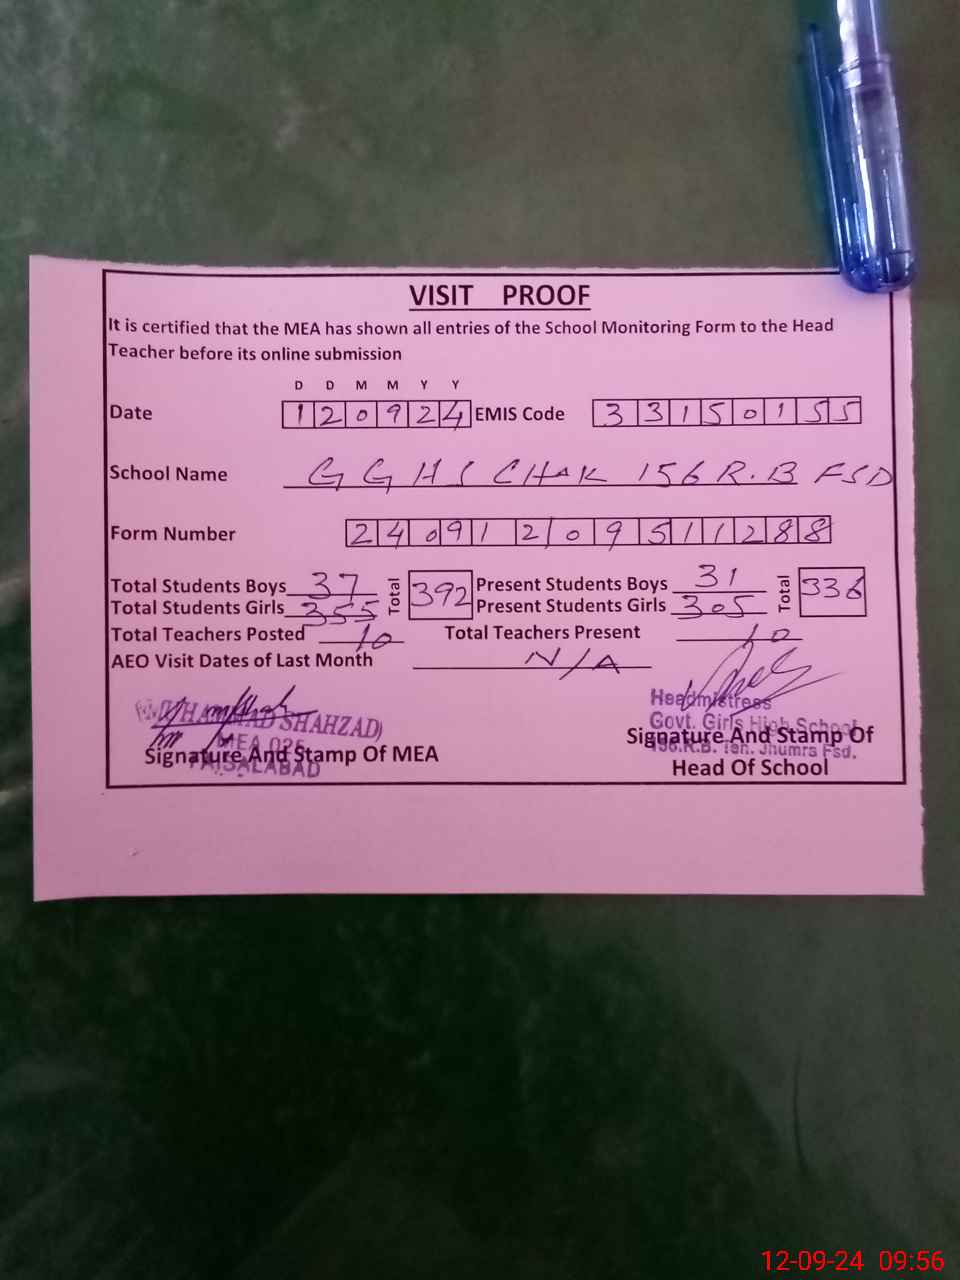 VISIT PROOF
It is certified that the MEA has shown all entries of the School Monitoring Form to the Head
Teacher before its online submission
D D M M Y Y
Date 120924 EMIS Code 33150155
School Name GGHS CHAK 156 R.B FSD
Form Number 24091209511288
Total Students Boys 37 Total 392 Present Students Boys 31 Total 336
Total Students Girls 355 Present Students Girls 305
Total Teachers Posted 10 Total Teachers Present 10
AEO Visit Dates of Last Month N/A
(MUHAMMAD SHAHZAD)
MEA
FAISALABAD
Signature And Stamp Of MEA
Headmistress
Govt. Girls High School
156.R.B. Teh. Jhumra Fsd.
Signature And Stamp Of
Head Of School
12-09-24 09:56